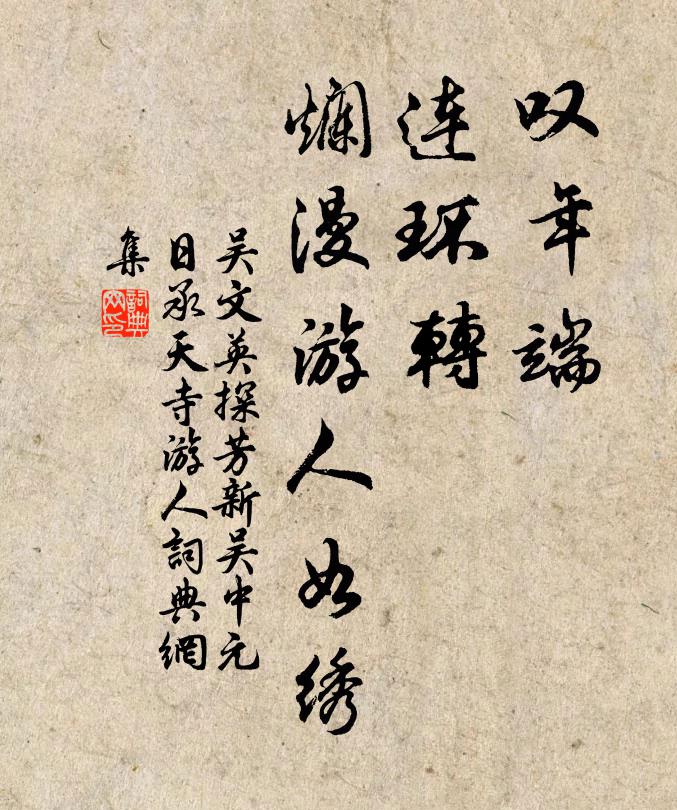 叹年端
连环轉
爛漫游人如绣
吴文英探芳新吴中元
日承天寺游人詞典網
集
詞典网印